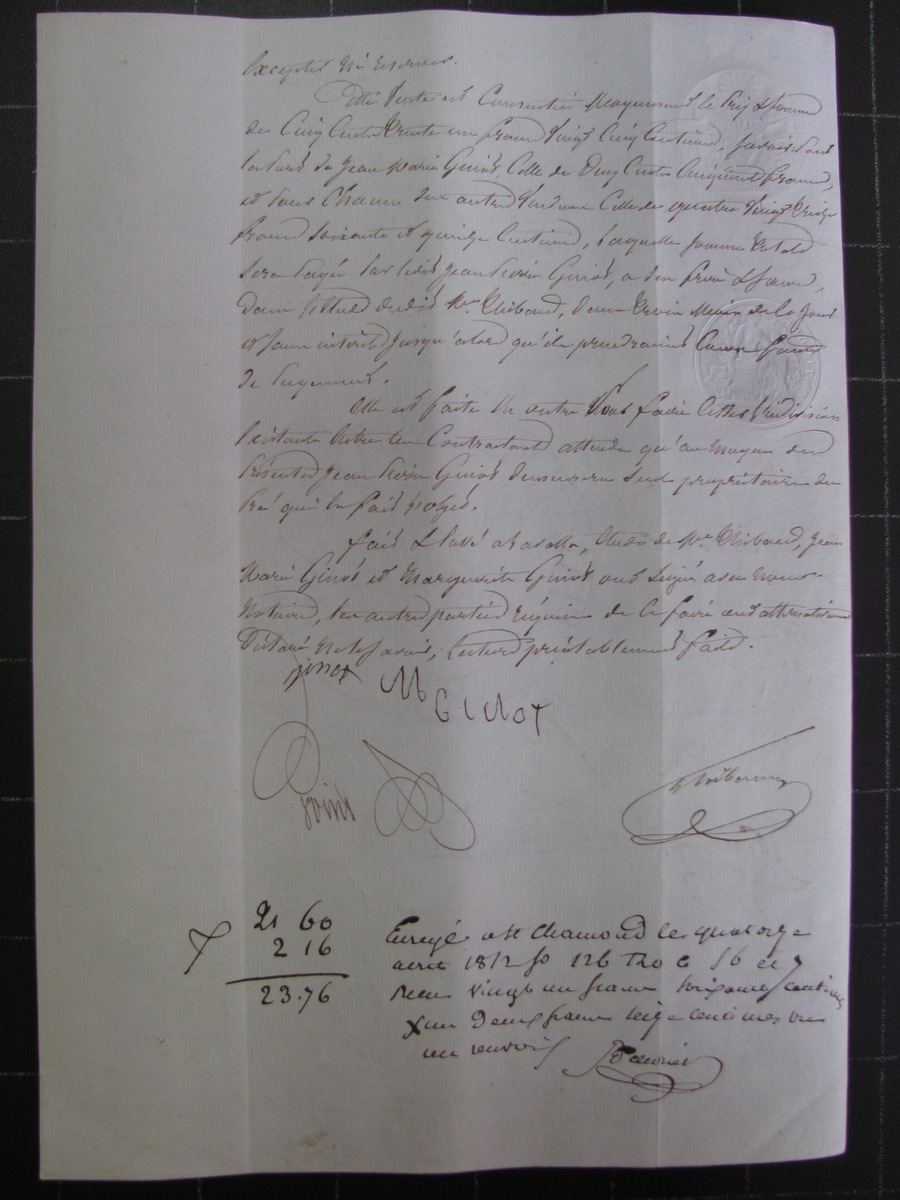 excepter ni reserver.
Cette Vente est Consentie Moyennant le Prix & Somme
de Cinq Cents trente un francs Vingt Cinq Centimes,
la part de Jean Marie Ginot, Celle de Deux Cents Cinquante francs,
et pour Chacun des autres Vendeurs Celle de quatre Vingt treize
francs Soixante et quinze Centimes, laquelle Somme totale
Sera Payée par ledit Jean Ginot, a Ses frais &
dans l'Etude dudit Me. Thibaud, dans trois Mois de Ce Jour
et Sans interêt Jusqu'alors qu'ils prendraient Cours faute
de Payement.
Elle est faite en outre Pour faire Cesser l'indivision
Existante Entre les Contractants attendu qu'au moyen des
Présentes Jean Ginot demeurera Seul propriétaire du
Pré qui en fait l'objet.
fait & Passé a Lavalla, Etude de Me. Thibaud, Jean
Marie Ginot et Marguerite Ginot ont Signé avec Nous
Notaire, les autres parties requises de le faire ont
Déclaré Ne le Savoir, Lecture préalablement faite.
ginot M
Ginot
21 60
2 16
23.76
Enregé a St Chamond le quatorze
avril 1812 fo 126 Ro C 5 6 et 7
Reçu Vingt un francs soixante Centimes
X me Deux francs seize centimes
un renvoi